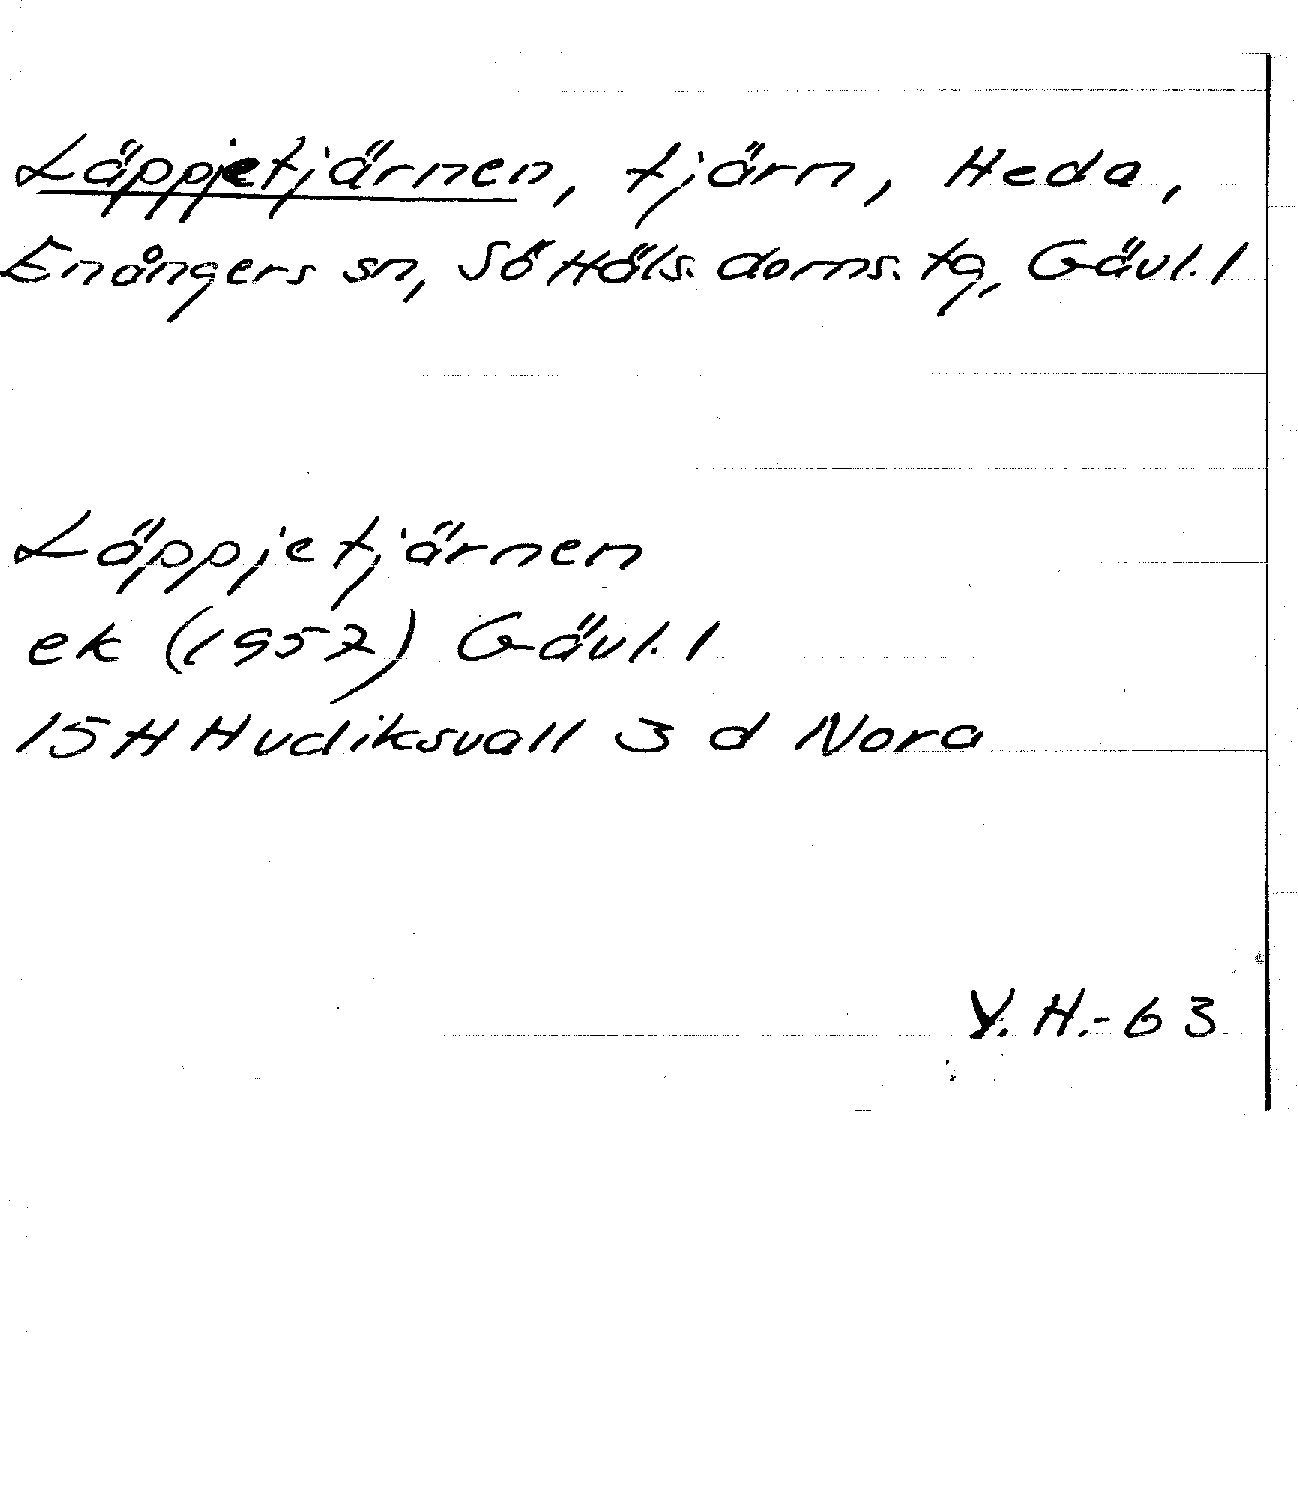 Läppjetjärnen, tjärn, Heda,
Enångers sn, Sö Häls. doms. tg, Gävl. l
Läppjetjärnen
ek (1957) Gävl. l
15 H Hudiksvall 3 d Nora
Y. H.-63